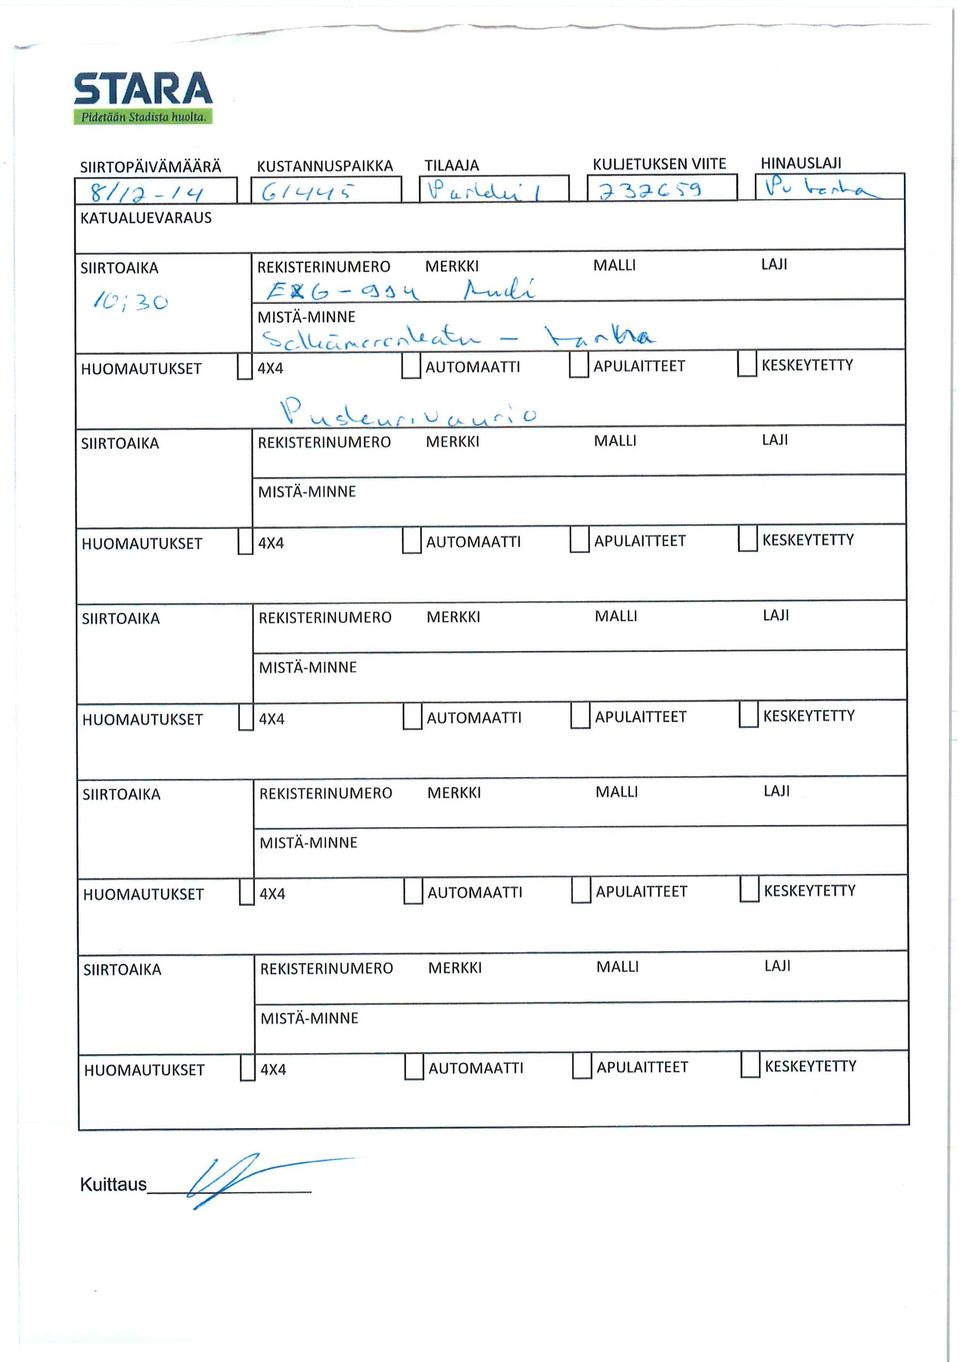 STARA
Pidetään Stadista huolta.
SIIRTOPÄIVÄMÄÄRÄ KUSTANNUSPAIKKA TILAAJA KULJETUKSEN VIITE HINAUSLAJI
8/12-14 61445 Parkki 1 232659 Pu tarha
KATUALUEVARAUS
SIIRTOAIKA REKISTERINUMERO MERKKI MALLI LAJI
10:30 EXG-994 Audi
MISTÄ-MINNE
Selkämerenkatu - tarha
HUOMAUTUKSET 4X4 AUTOMAATTI APULAITTEET KESKEYTETTY
Puskurivaurio
SIIRTOAIKA REKISTERINUMERO MERKKI MALLI LAJI
MISTÄ-MINNE
HUOMAUTUKSET 4X4 AUTOMAATTI APULAITTEET KESKEYTETTY
SIIRTOAIKA REKISTERINUMERO MERKKI MALLI LAJI
MISTÄ-MINNE
HUOMAUTUKSET 4X4 AUTOMAATTI APULAITTEET KESKEYTETTY
SIIRTOAIKA REKISTERINUMERO MERKKI MALLI LAJI
MISTÄ-MINNE
HUOMAUTUKSET 4X4 AUTOMAATTI APULAITTEET KESKEYTETTY
SIIRTOAIKA REKISTERINUMERO MERKKI MALLI LAJI
MISTÄ-MINNE
HUOMAUTUKSET 4X4 AUTOMAATTI APULAITTEET KESKEYTETTY
Kuittaus